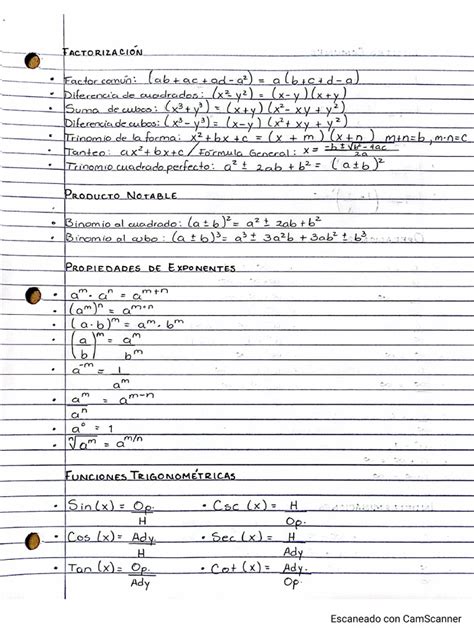 FACTORIZACIÓN
• Factor común: (ab+ac+ad-a²) = a(b+c+d-a)
• Diferencia de cuadrados: (x²-y²) = (x-y)(x+y)
• Suma de cubos: (x³+y³) = (x+y)(x²-xy+y²)
Diferencia de cubos: (x³-y³) = (x-y)(x²+xy+y²)
• Trinomio de la forma: x²+bx+c = (x+m)(x+n) m+n=b, m·n=c
• Tanteo: ax²+bx+c / Formula General: x = -b±√b²-4ac / 2a
• Trinomio cuadrado perfecto: a²±2ab+b² = (a±b)²
PRODUCTO NOTABLE
• Binomio al cuadrado: (a±b)² = a²±2ab+b²
• Binomio al cubo: (a±b)³ = a³±3a²b+3ab²±b³
PROPIEDADES DE EXPONENTES
• aᵐ·aⁿ = aᵐ⁺ⁿ
• (aᵐ)ⁿ = aᵐ·ⁿ
• (a·b)ᵐ = aᵐ·bᵐ
• (a/b)ᵐ = aᵐ/bᵐ
• a⁻ᵐ = 1/aᵐ
• aᵐ/aⁿ = aᵐ⁻ⁿ
• a⁰ = 1
• ⁿ√aᵐ = aᵐ/ⁿ
FUNCIONES TRIGONOMÉTRICAS
• Sin(x) = Op./H • Csc(x) = H/Op.
• Cos(x) = Ady./H • Sec(x) = H/Ady
• Tan(x) = Op./Ady • Cot(x) = Ady./Op.
Escaneado con CamScanner